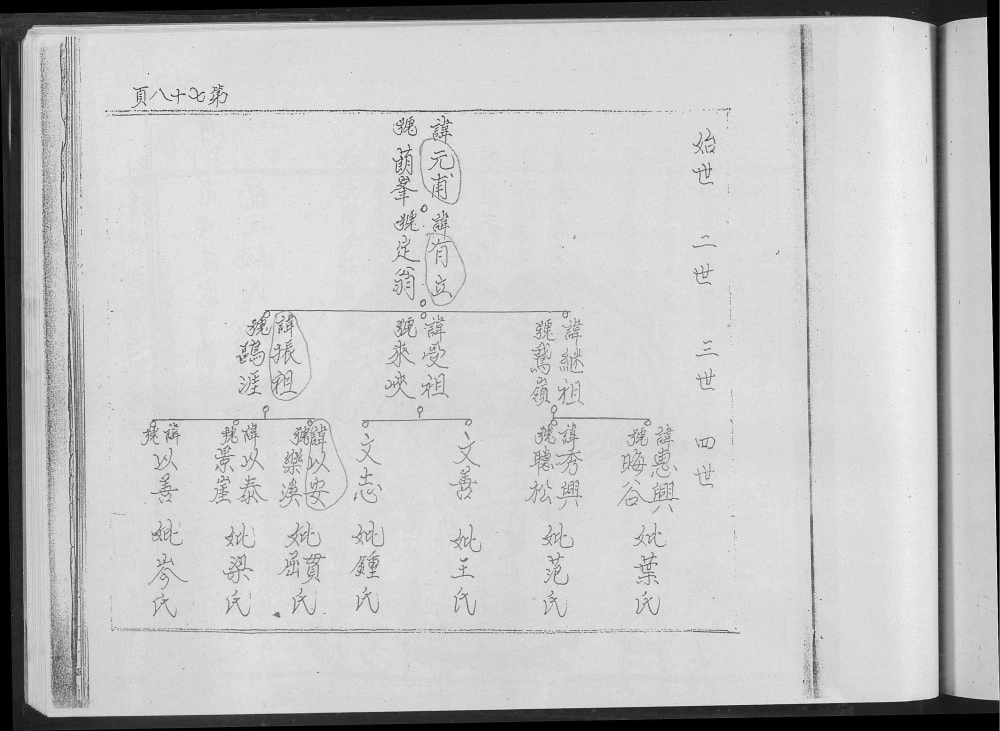 第七十八頁
始世
二世
三世
四世
諱元甫
號萌峯
諱有立
號定翁
諱継祖
號鵞嶺
諱受祖
號來峽
諱振祖
號鷗涯
諱惠興
號晦谷
妣葉氏
諱秀興
號聽松
妣范氏
文善
妣王氏
文志
妣鍾氏
諱以安
號樂溪
妣貫屈氏
諱以泰
號景崖
妣梁氏
諱以善
號
妣岑氏